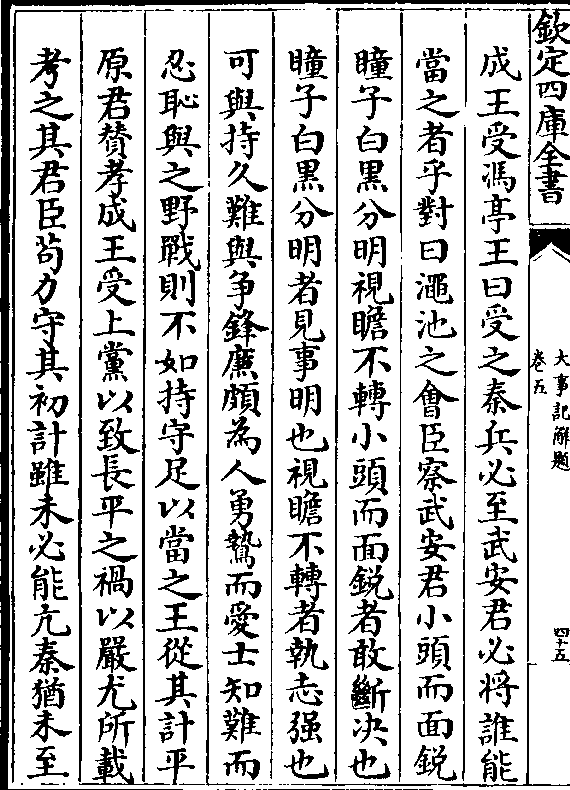 欽定四庫全書
大事記解題
卷五
四十五
成王受馮亭王曰受之秦兵必至武安君必將誰能
當之者乎對曰澠池之會臣察武安君小頭而面銳
瞳子白黒分明視瞻不轉小頭而面銳者敢斷决也
瞳子白黒分明者見事明也視瞻不轉者執志强也
可與持久難與争鋒廉頗為人勇鷙而愛士知難而
忍恥與之野戰則不如持守足以當之王從其計平
原君賛孝成王受上黨以致長平之禍以嚴尤所載
考之其君臣茍力守其初計雖未必能亢秦猶未至